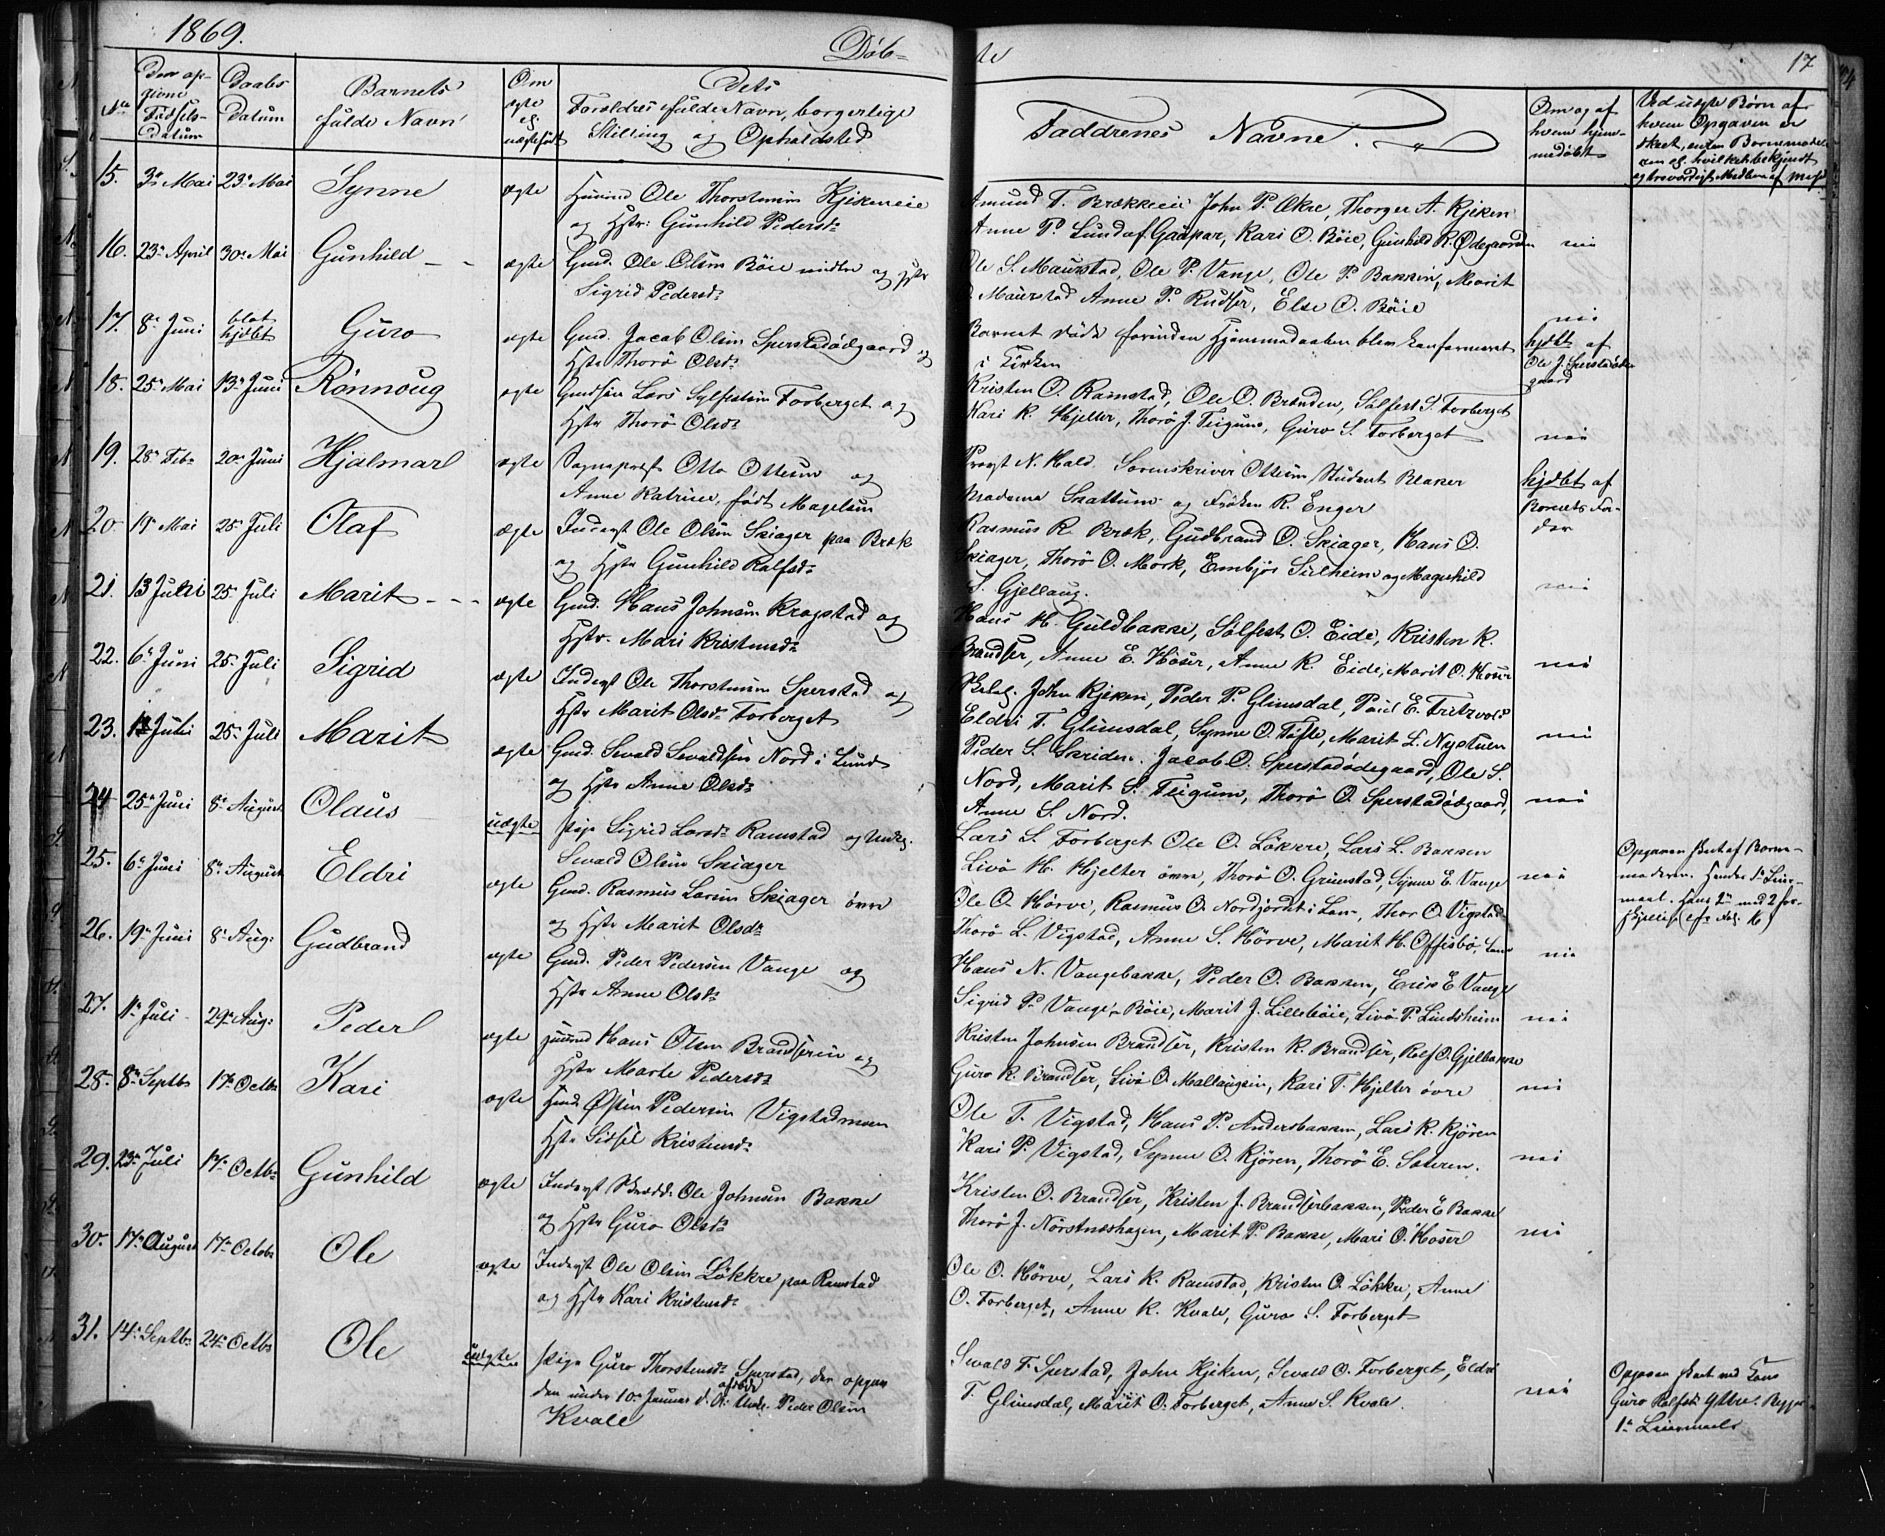 1869.
Døb-
te
17
No
Den op-
givne
Fødsels-
Datum
Daabs
Datum
Barnets
fulde Navn
Om
ægte
el.
uægtefødt
Dets
Forældres fulde Navn, borgerlige
Stilling og Opholdsted
Faddrenes Navne.
Om og af
hvem hjem-
medøbt
Ved uægte Børn af
hvem Opgaven er
skeet, enten Barnemoder
15. 3die Mai 23de Mai Synne ægte Huusmd Ole Thorstensen Kjekeneie
og Hstr: Gunhild Pedersdr
Amund T. Brækkeeie John P. Økre, Thorger A. Kjeken
Anne P. Lund af Gaupar, Kari O. Bøie, Gunhild R. Ødegaarden nei
16. 23de April 30te Mai Gunhild ægte Gmd. Ole Olsen Bøie midtre og Hstr
Sigrid Pedersdr
Ole S. Maurstad, Ole P. Vange, Ole P. Bakken, Marit
Maurstad Anne P. Rudser, Else O. Bøie nei
17. 8de Juni blot hjdøbt Guro ægte Gmd. Jacob Olsen Sperstadødgaard og
Hstr Thorø Olsdr
Barnet døde forinden Hjemmedaaben blev konfirmeret
i Kirken
hjdøbt af
Ole J. Sperstadøde
gaard
18. 25de Mai 13de Juni Rønnoug ægte Gmdsøn Lars Sylfestsen Forberget og
Hstr Thorø Olsdr
Kristen O. Ramstad, Ole O. Brenden, Sølfest S. Forberget
Kari K. Hjelter, Thorø J. Teigum, Guro S. Forberget nei
19. 28de Feb. 20de Juni Hjalmar ægte Sognepræst Otto Ottesen og
Anne Katrine, født Magelsen
Provst N. Hald. Sorenskriver Ottesen Student Blaker
Madame Skattum og Frøken R. Enger
hjdøbt af
Barnets Fa-
der
20. 19de Mai 25de Juli Olaf ægte Inderst Ole Olsen Skiager paa Bræk
og Hstr Gunhild Rolfsdr
Rasmus R. Bræk, Gudbrand O. Skiager, Hans O.
Skiager, Thorø O. Mork, Embjør Sulheim og Magnhild
S. Gjellaug. nei
21. 13 Juni 25de Juli Marit ægte Gmd. Hans Johnsen Krogstad og
Hstr. Mari Kristensdr
Hans H. Guldbakke, Sølfest O. Eide, Kristen K.
Brandser, Anne E. Høser, Anne K. Eide, Marit O. Høser nei
22. 6te Juni 25de Juli Sigrid ægte Inderst Ole Thorstensen Sperstad og
Hstr Marit Olsdr Forberget
John Kjeken, Peder P. Glimsdal, Paul E. Fritzvold
Eldri T. Glimsdal, Synne O. Tøfte, Marit L. Nystuen nei
23. Juli 25de Juli Marit ægte Gmd. Sevald Sevaldsen Nord i Lund
og Hstr Anne Olsdr
Peder S. Skriden. Jacob O. Sperstadødegaard, Ole S.
Nord, Marit S. Teigum, Thorø O. Sperstadødgaard,
Anne S. Nord. nei
24 25de Juni 8de August Olaus uægte Pige Sigrid Larsdr Ramstad og Undg.
Sevald Olsen Skiager
Lars S. Forberget Ole O. Løkkre, Lars L. Bakken
Livø H. Hjelter øvre, Thorø O. Grimstad, Synne E. Vange nei
Opgaven skeet af Barne-
moderen. Hendes 1ste Leier-
maal. Hans 2det med 2 for-
skjellige
25. 6te Juni 8de August Eldri ægte Gmd. Rasmus Larsen Skiager øvre
og Hstr Marit Olsdr
Ole O. Hørve, Rasmus O. Nordjordet i Lom, Thor O. Vigstad
Thorø L. Vigstad, Anne S. Hørve, Marit H. Offisbø, Lom nei
26. 19de Juni 8de Aug: Gudbrand ægte Gmd. Peder Pedersen Vange og
Hstr Anne Olsdr
Hans N. Vangebakke, Peder O. Bakken, Erik E. Vange
Sigrid P. Vange, Bøie, Marit J. Lillebøie, Livø P. Lindsheim nei
27. 1ste Juli 29de Aug: Peder ægte Huusmd Hans Olsen Brandsereie og
Hstr Marte Pedersdr
Kristen Johnsen Brandser, Kristen K. Brandser, Rolf O. Gjelbakke
Guro K. Brandser, Livø O. Mallaugein, Kari T. Hjelter øvre nei
28. 8de Septbr 17de Octbr Kari ægte Huusmd Østen Pedersen Vigstadmoen
Hstr Sidsel Kristensdr
Ole T. Vigstad, Hans P. Andersbakken, Lars K. Kjøren
Kari P. Vigstad, Synne O. Kjøren, Thorø E. Sæteren. nei
29. 23de Juli 17de Octbr Gunhild ægte Inderst Skrædd. Ole Johnsen Bakke
og Hstr Guro Olsdr
Kristen O. Brandser, Kristen J. Brandserbakken, Peder E Bakke
Thorø J. Nørstneshagen, Marit P. Bakke, Mari O. Høser nei
30. 17de August 17de Octobr Ole ægte Inderst Ole Olsen Løkkre paa Ramstad
og Hstr Kari Kristensdr
Ole O. Hørve, Lars K. Ramstad, Kristen O. Løkkre, Anne
O. Forberget, Anne K. Kvale, Guro S. Forberget
31. 14de Septbr 24de Octbr Ole uægte Pige Guro Thorstensdr Sperstad, den opgiv
den under 10de Januar d. A. afdøde Undk. Peder Olsen
Kvale
Sevald T. Sperstad, John Kjeken, Sevald O. Forberget, Eldri
T. Glimsdal, Marit O. Forberget, Anne S. Kvale. nei
Opgaven skeet ved Kone
Guro Rolfsdr Yttre
1ste Leiermaal